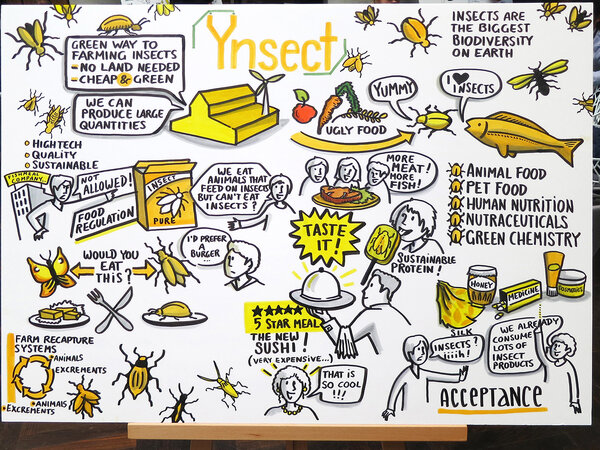 Ynsect
GREEN WAY TO
FARMING INSECTS
- NO LAND NEEDED
- CHEAP & GREEN
WE CAN
PRODUCE LARGE
QUANTITIES
HIGHTECH
QUALITY
SUSTAINABLE
INSECTS ARE
THE BIGGEST
BIODIVERSITY
ON EARTH
YUMMY
I ♥
INSECTS
UGLY FOOD
FISHMEAL
COMPANY
NOT
ALLOWED!
FOOD
REGULATION
INSECT
PURE
WE EAT
ANIMALS THAT
FEED ON INSECTS
BUT CAN'T EAT
INSECTS?
MORE
MEAT!
MORE
FISH!
ANIMAL FOOD
PET FOOD
HUMAN NUTRITION
NUTRACEUTICALS
GREEN CHEMISTRY
WOULD YOU
EAT
THIS?
I'D PREFER
A
BURGER
...
TASTE
IT!
SUSTAINABLE
PROTEIN!
5 STAR MEAL
THE NEW
SUSHI!
(VERY EXPENSIVE...)
THAT IS
SO COOL
!!!
HONEY
MEDICINE
COSMETICS
SILK
FARM RECAPTURE
SYSTEMS
ANIMALS
EXCREMENTS
ANIMALS
EXCREMENTS
INSECTS?
iiiih!
WE ALREADY
CONSUME
LOTS OF
INSECT
PRODUCTS
ACCEPTANCE